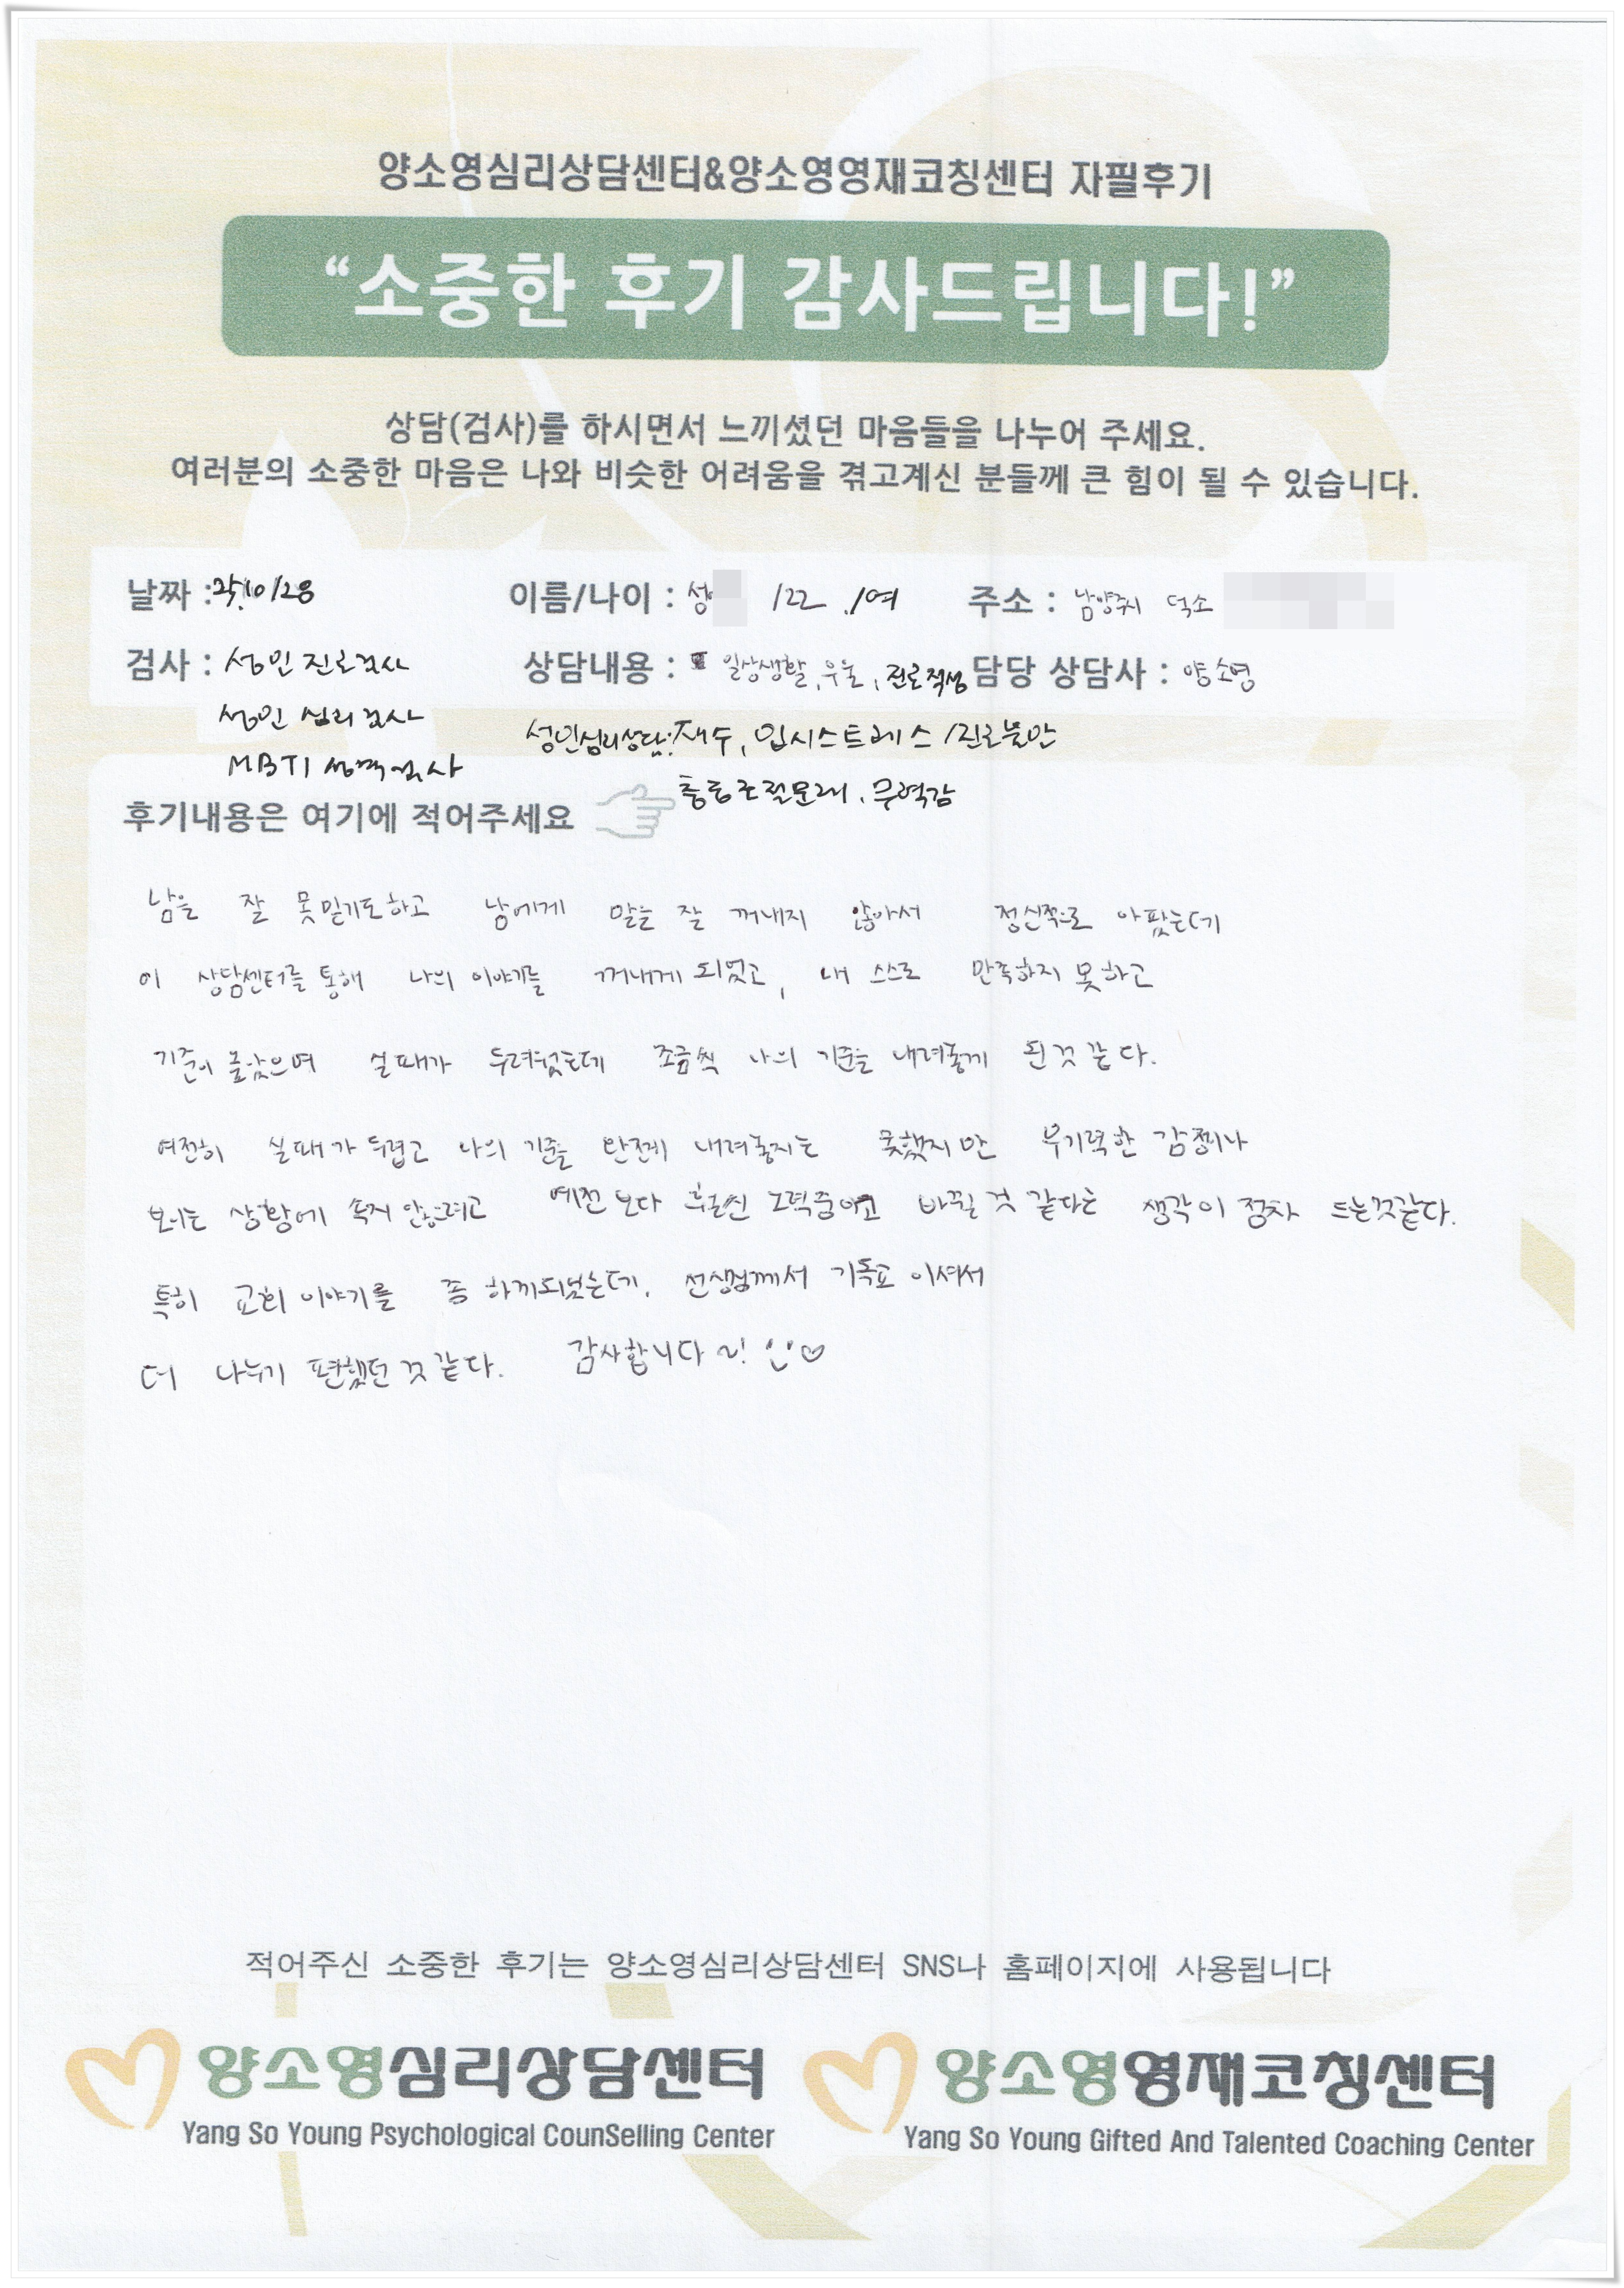 양소영심리상담센터&양소영영재코칭센터 자필후기
“소중한 후기 감사드립니다!”
상담(검사)를 하시면서 느끼셨던 마음들을 나누어 주세요.
여러분의 소중한 마음은 나와 비슷한 어려움을 겪고계신 분들께 큰 힘이 될 수 있습니다.
날짜 : 25.10/28 이름/나이 : 성 /22 /여 주소 : 남양주시 덕소
검사 : 성인 진로검사 상담내용 : 일상생활, 우울, 진로적성 담당 상담사 : 양소영
성인 심리검사 성인심리상담: 재수, 입시스트레스/진로불안
MBTI 성격검사 충동조절문제, 무력감
후기내용은 여기에 적어주세요
남을 잘 못믿기도하고 남에게 말을 잘 꺼내지 않아서 정신적으로 아팠는데
이 상담센터를 통해 나의 이야기를 꺼내게 되었고, 내 스스로 만족하지 못하고
기준이 높았으며 실패가 두려웠는데 조금씩 나의 기준을 내려놓게 된 것 같다.
여전히 실패가 두렵고 나의 기준을 완전히 내려놓지는 못했지만 무기력한 감정이나
보이는 상황에 속지 않으려고 예전보다 훨씬 노력중이고 바뀔 것 같다는 생각이 점차 드는것같다.
특히 교회 이야기를 좀 하게되었는데, 선생님께서 기독교 이셔서
더 나누기 편했던 것 같다. 감사합니다 ~!
적어주신 소중한 후기는 양소영심리상담센터 SNS나 홈페이지에 사용됩니다
양소영심리상담센터 양소영영재코칭센터
Yang So Young Psychological CounSelling Center Yang So Young Gifted And Talented Coaching Center